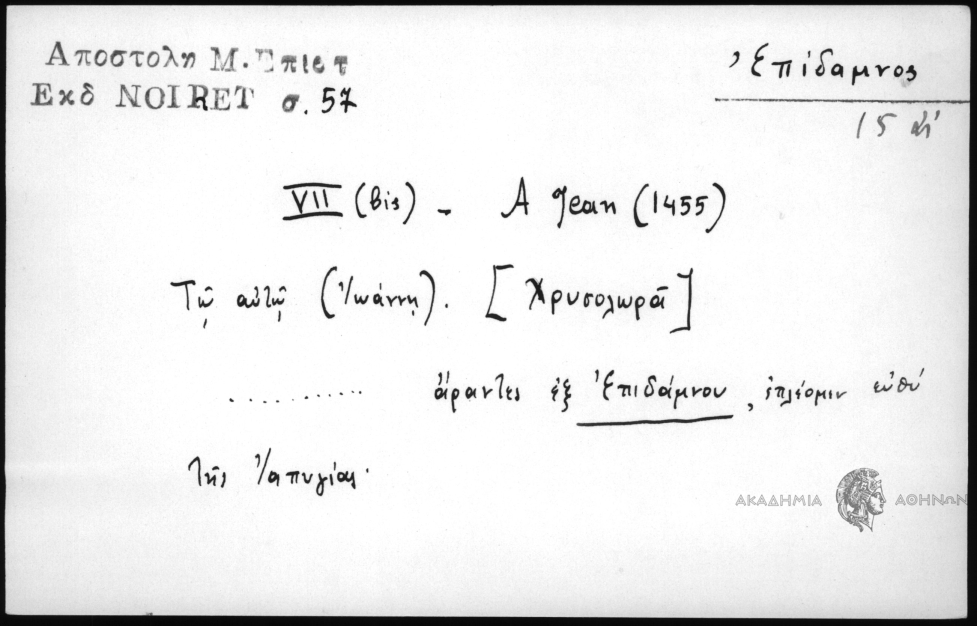 Αποστολη Μ. Επιστ
Εκδ NOIRET σ. 57
Ἐπίδαμνος
15 αἰ
VII (bis) - A Jean (1455)
Τῷ αὐτῷ (Ἰωάννῃ). [Χρυσολωρᾶ]
............ ἄραντες ἐξ Ἐπιδάμνου, ἐπλέομεν εὐθύ
τῆς Ἰαπυγίας·
ΑΚΑΔΗΜΙΑ ΑΘΗΝΩΝ